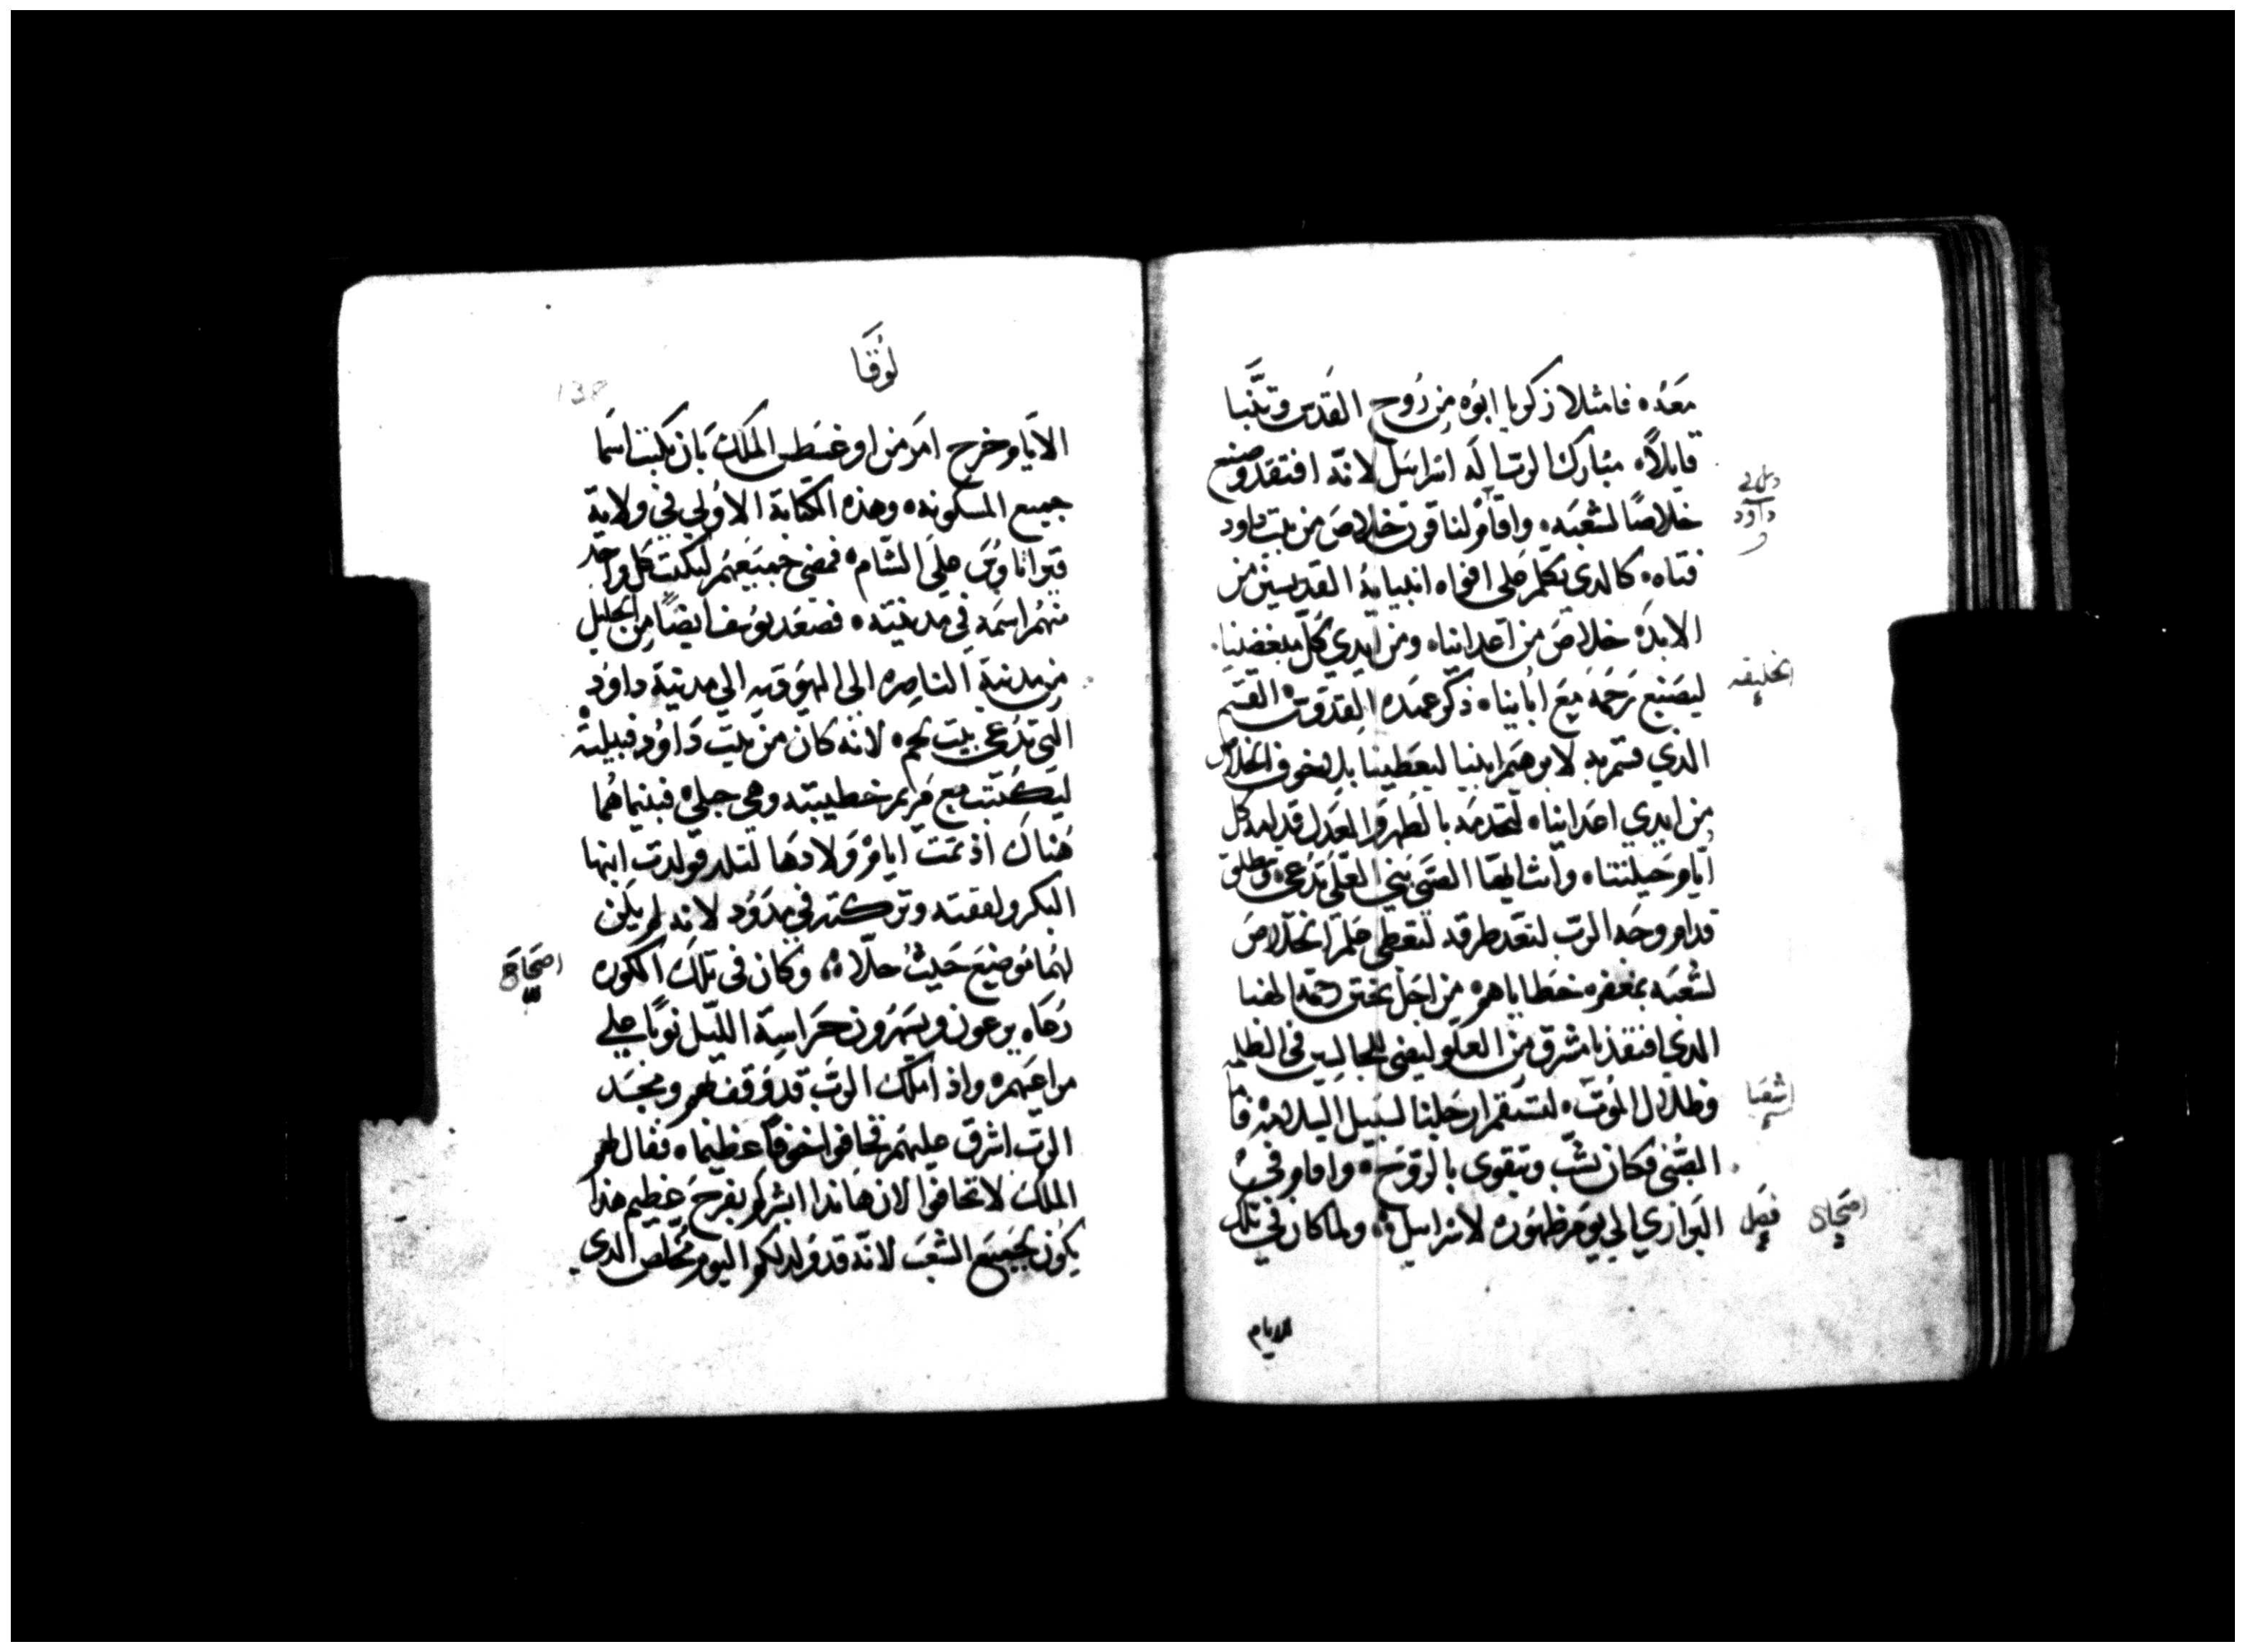 معه ه فامتلا زكريا ابوه من روح القدس وتنبا
قايلاً ه مبارك الرب اله اسراييل لانه افتقد وصنع
خلاصًا لشعبه ه واقام لنا قرن خلاص من بيت داود
فتاه ه كالدى تكلم على افواه انبيايه القديسين من
الابد ه خلاص من اعداينا ه ومن ايدي كل مبغضينا ه
ليصنع رحمه مع اباينا ه ذكر عهده القدوس القسم
الذي قسم به لابرهيم ابينا ليعطينا بلا خوف الخلاص
من ايدي اعداينا ه لنخدمه بالطهر والعدل قدامه كل
ايام حياتنا ه وانت ايها الصبي نبي العلي تدعي ه وتنطلق
قدام وجه الرب لتعد طرقه لتعطى علم الخلاص
لشعبه بمغفره خطاياهم ه من اجل تحنن رحمة الهنا
الدي افتقدنا مشرق من العلو ليضي للجالسين في الظلمه
وظلال الموت ه لتستقم ارجلنا لسبيل السلامه ه فاما
الصبي فكان يشب ويتقوى بالروح ه واقام في
البراري الي يوم ظهوره لاسراييل ه ولما كان في تلك
داود
الخليقه
اشعيا
فصل
اصحاح
الايام
لوقا
138
الايام خرج امر من اوغسطس الملك بان يكتب اسما
جميع المسكونه ه وهذه الكتابة الاولي في ولاية
قيراناوس على الشام ه فمضى جميعهم ليكتب كل واحد
منهم اسمه في مدينته ه فصعد يوسف ايضًا من الجليل
من مدينة الناصره الى اليهوديه الي مدينة داود
التى تدعى بيت لحم ه لانه كان من بيت داود قبيلته
ليكتتب مع مريم خطيبته وهى حبلي ه فبينما هما
هناك اذ تمت ايام ولادها لتلد فولدت ابنها
البكر ولففته وتركته في مدود لانه لم يكن
لهما موضع حيث حلّا ه وكان فى تلك الكوره
رعاه يرعون ويسهرون حراسة الليل نوبًا على
مراعيهم ه واذ املاك الرب قد وقف لهم ومجد
الرب اشرق عليهم فخافوا خوفًا عظيما ه فقال لهم
الملاك لا تخافوا لان هاندا ابشركم بفرح عظيم هذا
يكون لجميع الشعب لانه قد ولد لكم اليوم مخلص الدي
اصحاح